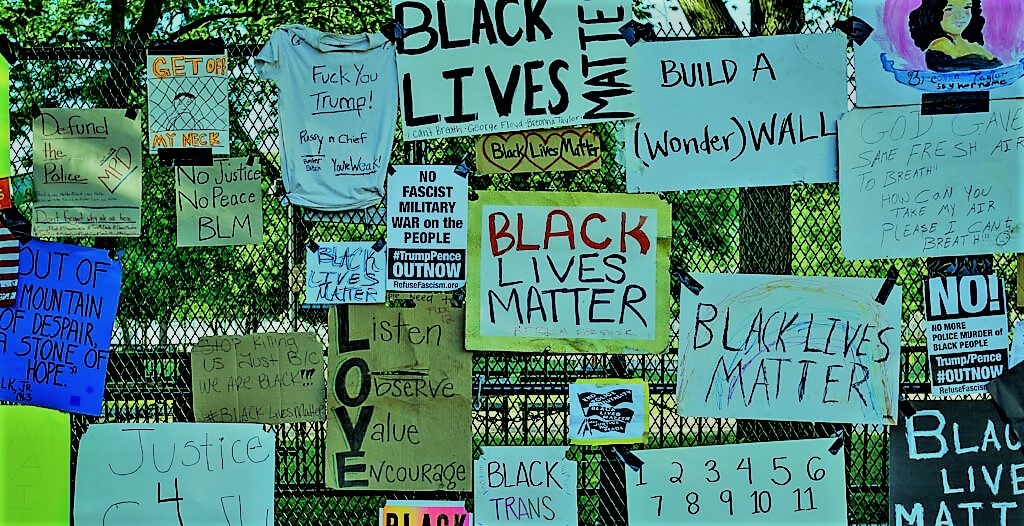 BLACK
LIVES
MATTE
I can't Breath - George Floyd - Breonna Taylor
GET OFF
MY NECK
Fuck You
Trump!
Pussy n Chief
Bunker
Bitch
You're Weak!
BUILD A
(Wonder) WALL
Breonna Taylor
say her name
Defund
the
Police
MPD
No Justice
No Peace
BLM
Black Lives Matter
NO
FASCIST
MILITARY
WAR on the
PEOPLE
#TrumpPence
OUTNOW
RefuseFascism.org
BLACK
LIVES
MATTER
BLACK
LIVES
MATTER
SAME FRESH AIR
TO BREATH"
HOW CAN YOU
TAKE MY AIR
PLEASE I CAN'T
BREATH"
OUT OF
MOUNTAIN
OF DESPAIR,
A STONE OF
HOPE."
Stop Killing
us Just B/C
WE ARE BLACK!!!
#BLACK Lives Matter
LOVE
Listen
Observe
Value
Encourage
BLACK LIVES
MATTER
NO!
NO MORE
POLICE MURDER of
BLACK PEOPLE
Trump/Pence
#OUTNOW
RefuseFascis
Justice
4
BLACK
TRANS
1 2 3 4 5 6
7 8 9 10 11
BLAC
LIVE
MATT
BLACK